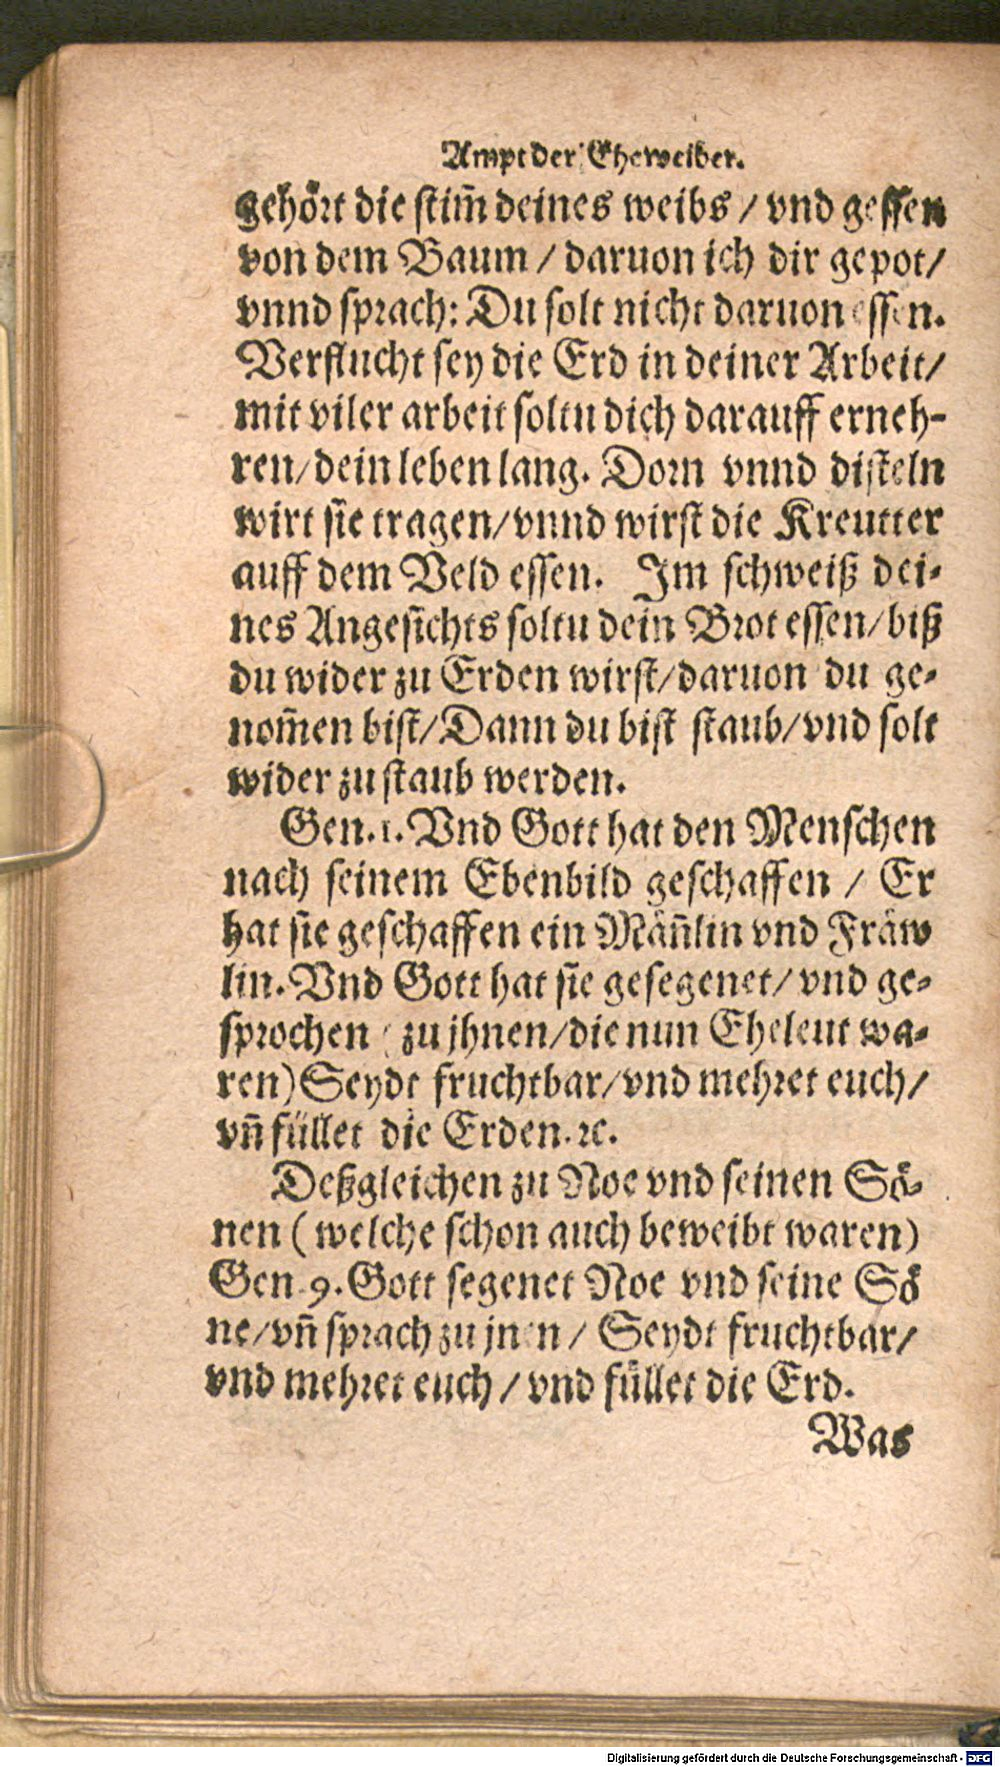 Ampt der Eheweiber.
gehoͤrt die stim̃ deines weibs / vnd gessen
von dem Baum / daruon ich dir gepot /
vnnd sprach: Du solt nicht daruon essen.
Verflucht sey die Erd in deiner Arbeit /
mit viler arbeit soltu dich darauff erneh-
ren / dein leben lang. Dorn vnnd disteln
wirt sie tragen / vnnd wirst die Kreutter
auff dem Veld essen. Im schweiß dei-
nes Angesichts soltu dein Brot essen / biß
du wider zu Erden wirst / daruon du ge-
nom̃en bist / Dann du bist staub / vnd solt
wider zu staub werden.
Gen. 1. Vnd Gott hat den Menschen
nach seinem Ebenbild geschaffen / Er
hat sie geschaffen ein Maͤñlin vnd Fraͤw
lin. Vnd Gott hat sie gesegenet / vnd ge-
sprochen ( zu jhnen / die nun Eheleut wa-
ren) Seydt fruchtbar / vnd mehret euch /
vñ fuͤllet die Erden. ꝛc.
Deßgleichen zu Noe vnd seinen Soͤ-
nen ( welche schon auch beweibt waren)
Gen. 9. Gott segenet Noe vnd seine Soͤ
ne / vñ sprach zu jnen / Seydt fruchtbar /
vnd mehret euch / vnd fuͤllet die Erd.
Was
Digitalisierung gefördert durch die Deutsche Forschungsgemeinschaft - DFG